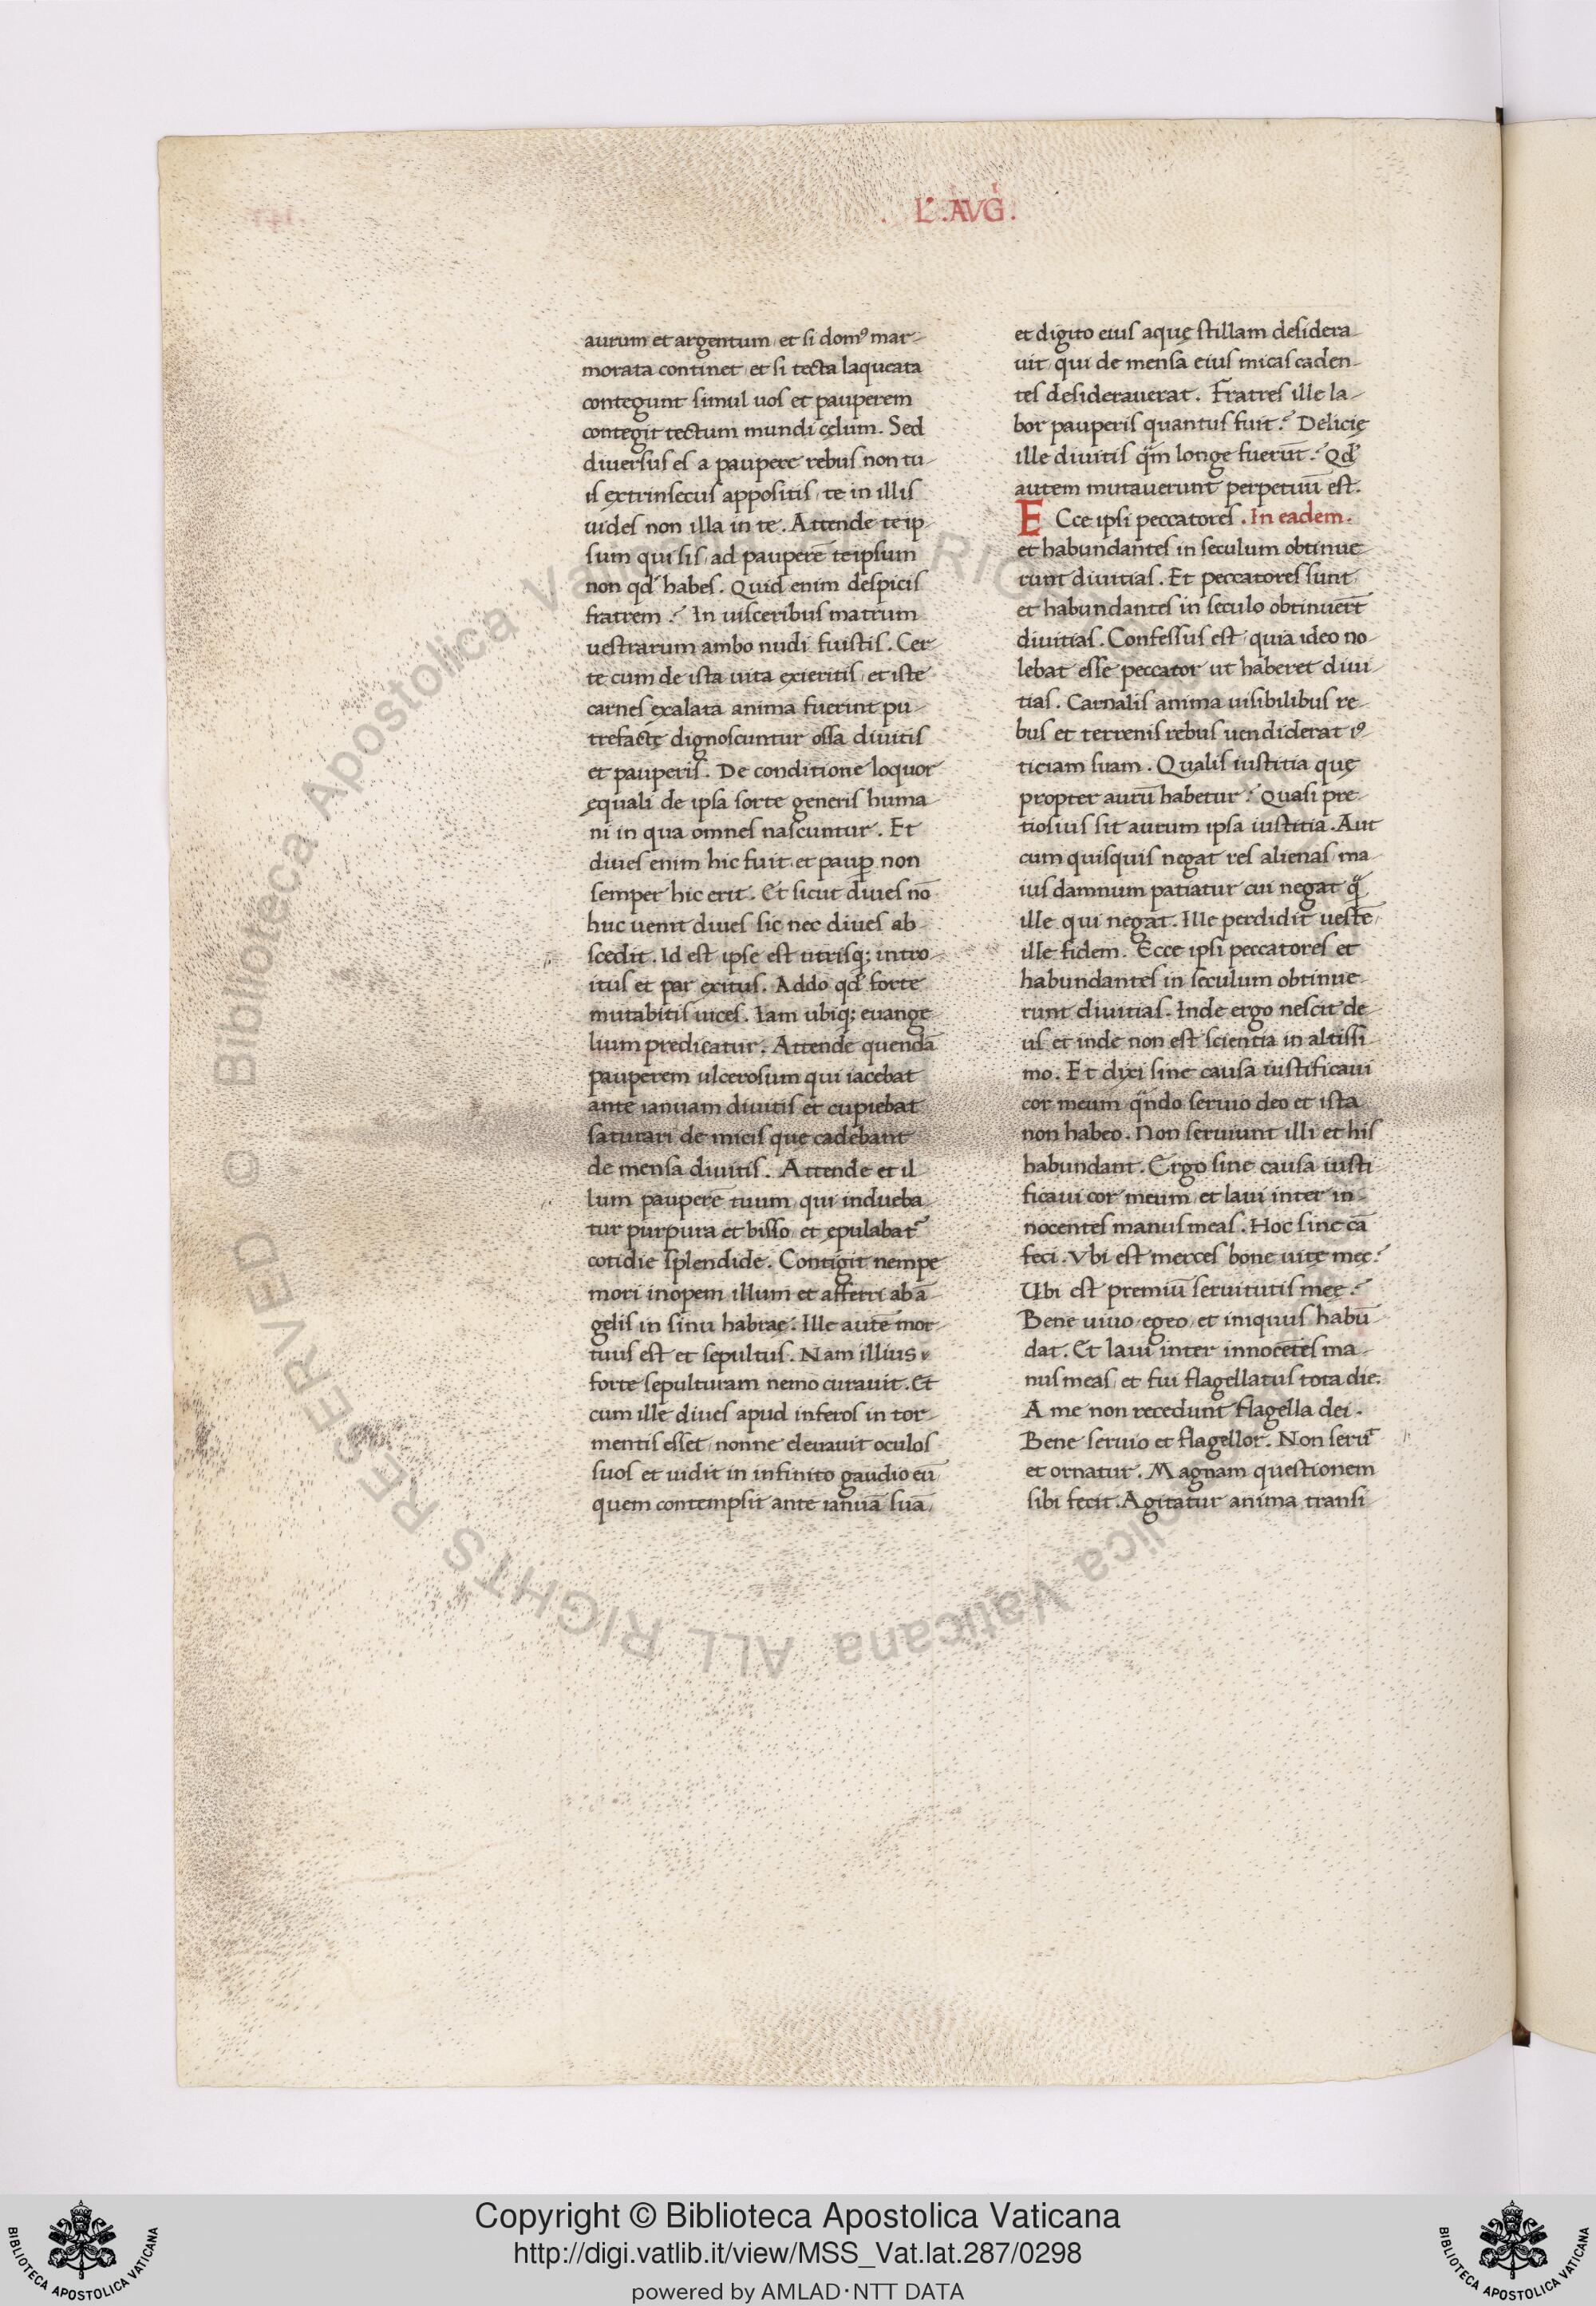 . L'. AVG̅.
aurum et argentum et si domꝰ mar-
morata continet et si tecta laqueata
contegunt simul uos et pauperem
contegit tectum mundi cęlum. Sed
diuersus es a paupere rebus non tu-
is extrinsecus appositis, te in illis
uides non illa in te. Attende te ip-
sum qui sis, ad pauperē teipsum
non qd̛ habes. Quid enim despicis
fratrem? In uisceribus matrum
uestrarum ambo nudi fuistis. Cer-
te cum de ista uita exieritis, et iste
carnes exalata anima fuerint pu-
trefactę dignoscuntur ossa diuitis
et pauperis. De conditione loquor
ęquali de ipsa sorte generis huma-
ni in qua omnes nascuntur. Et
diues enim hic fuit et paup̲ non
semper hic erit. Et sicut diues nō
huc uenit diues sic nec diues ab-
scedit. Id est ipse est utrisq; intro-
itus et par exitus. Addo qd̛ forte
mutabitis uices. Iam ubiq; euange-
lium predicatur. Attende quendā
pauperem ulcerosum qui iacebat
ante ianuam diuitis et cupiebat
saturari de micis que cadebant
de mensa diuitis. Attende et il
lum pauperē tuum, qui indueba-
tur purpura et bisso, et epulabat᷑
cotidie splendide. Contigit nempe
mori inopem illum et afferri ab ā-
gelis in sinu habrae. Ille autē mor-
tuus est et sepultus. Nam illius
forte sepulturam nemo curauit. Et
cum ille diues apud inferos in tor-
mentis esset, nonne eleuauit oculos
suos et uidit in infinito gaudio eū
quem contempsit ante ianuā suā,
et digito eius aquę stillam desidera-
uit, qui de mensa eius micas caden-
tes desiderauerat. Fratres ille la-
bor pauperis quantus fuit? Delicię
ille diuitis qᷓm longe fuerūt? Qd̛
autem mutauerunt perpetuū est.
ECce ipsi peccatores. In eadem.
et habundantes in seculum obtinue-
runt diuitias. Et peccatores sunt
et habundantes in seculo obtinuert̄
diuitias. Confessus est quia ideo no-
lebat esse peccator ut haberet diui-
tias. Carnalis anima uisibilibus re-
bus et terrenis rebus uendiderat iꝰ
ticiam suam. Qualis iustitia quę
propter aurū habetur? Quasi pre-
tiosius sit aurum ipsa iustitia. Aut
cum quisquis negat res alienas ma-
ius damnum patiatur cui negat qᷓ
ille qui negat. Ille perdidit uestē,
ille fidem. Ecce ipsi peccatores et
habundantes in seculum obtinue-
runt diuitias. Inde ergo nescit de-
us et inde non est scientia in altissi-
mo. Et dixi sine causa iustificaui
cor meum qᷓndo seruio deo et ista
non habeo. Non seruiunt illi et his
habundant. Ergo sine causa iusti
ficaui cor meum et laui inter in-
nocentes manus meas. Hoc sine cā
feci. Vbi est merces bone uitę meę?
Ubi est premiū seruitutis meę?
Bene uiuo egeo, et iniquus habū
dat. Et laui inter innocētes ma-
nus meas et fui flagellatus tota die.
A me non recedunt flagella dei.
Bene seruio et flagellor. Non seru᷑
et ornatur. Magnam questionem
sibi fecit. Agitatur anima transi
Copyright © Biblioteca Apostolica Vaticana
http://digi.vatlib.it/view/MSS_Vat.lat.287/0298
powered by AMLAD·NTT DATA
BIBLIOTECA APOSTOLICA VATICANA
BIBLIOTECA APOSTOLICA VATICANA